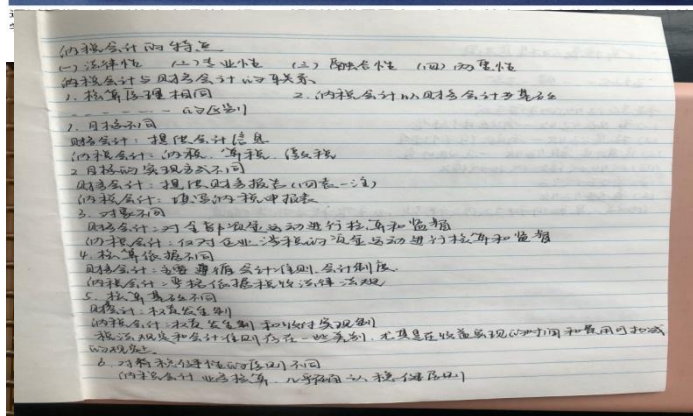 纳税会计的特点
(一) 法律性 (二) 专业性 (三) 融合性 (四) 两重性
纳税会计与财务会计的联系
1. 核算原理相同 2. 纳税会计以财务会计为基础
- - - - - - 的区别
1. 目标不同
财务会计：提供会计信息
纳税会计：纳税、算税、缴税
2. 目标的实现方式不同
财务会计：提供财务报表(四表一注)
纳税会计：填写纳税申报表
3. 对象不同
财务会计：对全部资金运动进行核算和监督
纳税会计：仅对企业涉税的资金运动进行核算和监督
4. 核算依据不同
财务会计：主要遵循会计准则、会计制度
纳税会计：严格依据税收法律法规
5. 核算基础不同
财务会计：权责发生制
纳税会计：权责发生制和收付实现制
税法规定和会计准则存在一些差别，尤其是在收益实现的时间和费用可扣减
6. 对待稳健性的原则不同
纳税会计业务核算，几乎不确认稳健原则